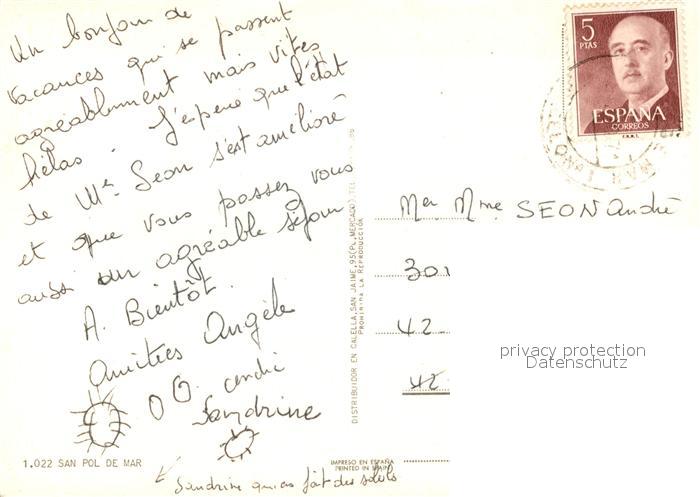 Un bonjour de
vacances qui se passent
agréablement mais vites
hélas. J'espère que l'état
de Mr Seon s'est amélioré
et que vous passez vous
aussi un agréable séjour
A. Bientôt.
Amitiés Angèle
Sandrine
Sandrine qui a fait des soleils
1.022 SAN POL DE MAR
DISTRIBUIDOR EN CALELLA, SAN JAIME, 95 (PL. MERCADO) TEL.
PROHIBIDA LA REPRODUCCIÓN
IMPRESO EN ESPAÑA
PRINTED IN SPAIN
5
PTAS
ESPAÑA
CORREOS
F.N.M.T.
Mr Mme SEON André
301
42
42
privacy protection
Datenschutz